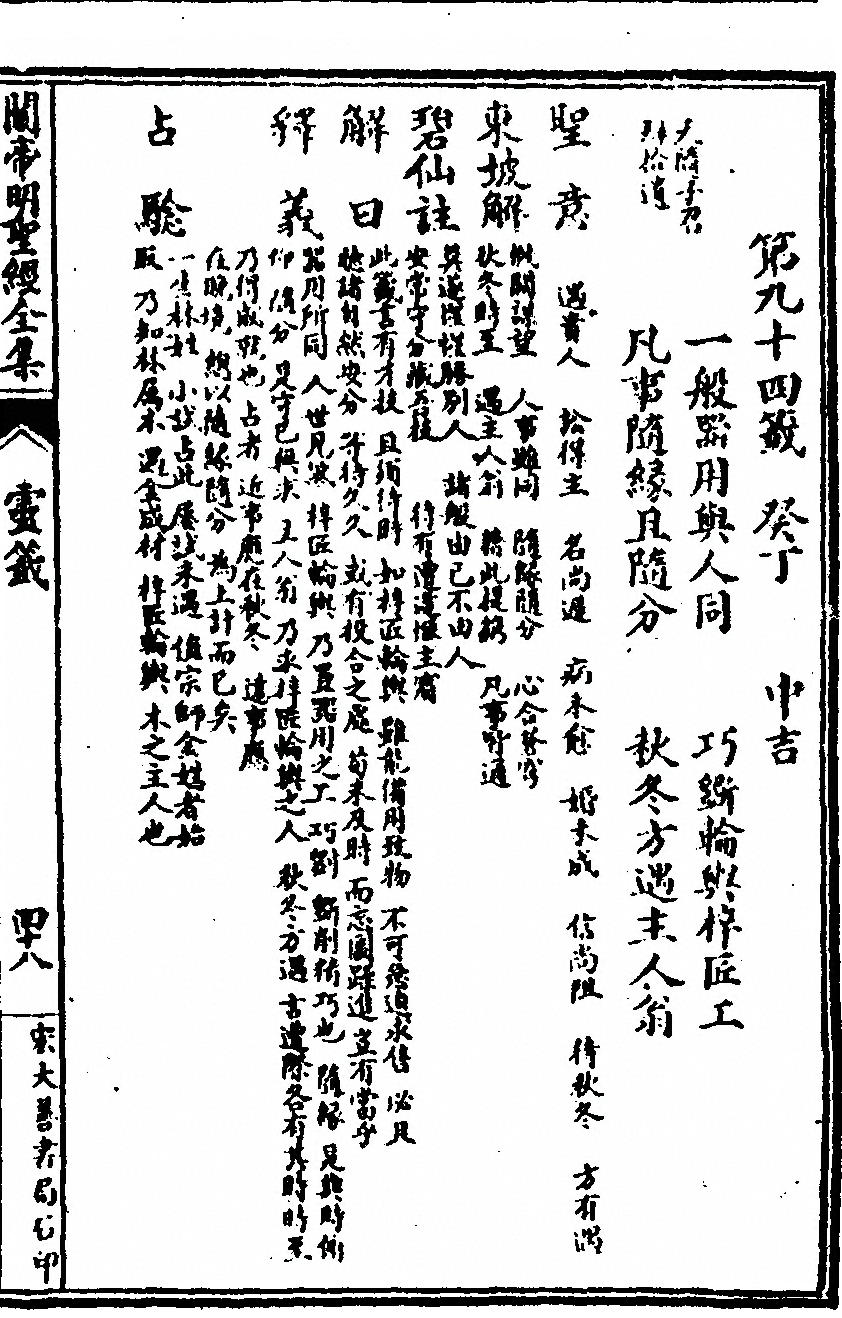 第九十四籤　癸丁　中吉
一般器用與人同　巧斵輪輿梓匠工
凡事隨緣且隨分　秋冬方遇主人翁
聖意　遇貴人　訟得主　名尚遲　病未愈　婚未成　信尚阻　待秋冬　方有遇
東坡解　謀望　人事雖同　隨緣隨分　心合
秋冬時至　遇主人翁　藉此提携　凡事皆通
碧仙註　莫逐別人　諸般由己不由人
安常守分藏其技　待有遭逢值主賓
解曰　此籤言有才技　且須待時　如梓匠輪輿　雖能備用致物　不可急迫求售　必且
聽諸自然安分　等待久久　或有投合之處　苟未及時　而忘圖躁進　豈有當乎
釋義　器用所同　人世凡業　梓匠輪輿　乃置器用之工　巧斵　斵削精巧也　隨緣　是與時俯
仰　隨分　是守己無求　主人翁　乃求梓匠輪輿之人　秋冬方遇　言遭際各有其時　時至
乃得成就也　占者　近事應在秋冬　遠事應
在晚境　總以隨緣隨分　為上計而已矣
占驗　一生林姓　小試占此　屢試未遇　值宗師金姓者始
取　乃知林屬木　遇金成材　梓匠輪輿　木之主人也
關帝明聖經全集
靈籤
四十八
宋大善書局石印